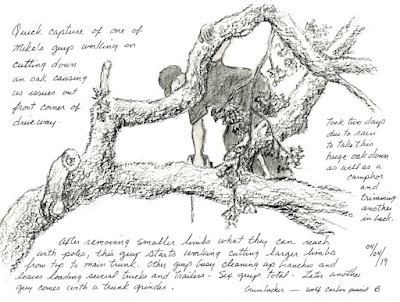 Quick capture of one of
Mike's guys working on
cutting down
an oak causing
us issues out
front corner of
driveway.
Took two days
due to rain
to take this
huge oak down
as well as a
camphor
and
trimming
another
in back.
After removing smaller limbs what they can reach
with poles, this guy starts working cutting larger limbs
from top to main trunk. Other guys busy cleaning up branches and
leaves loading several trucks and trailers. Six guys total. Later another
guy comes with a trunk grinder.
Grumbacher - wolff carbon pencil B
04/04/19